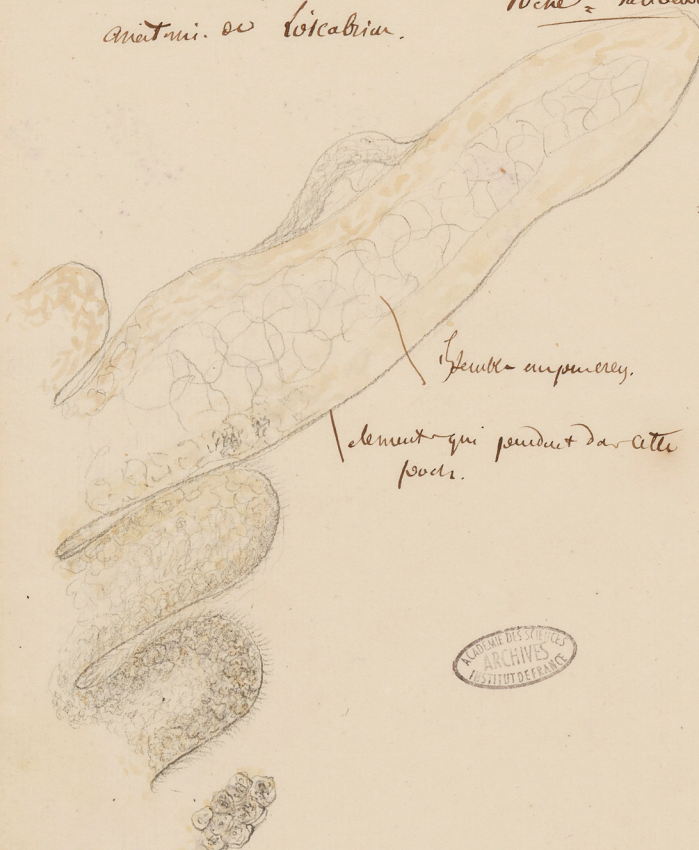 anatomie de l'oscabrion.
Poche =
semble empierrez.
elements qui pendent dans cette
poche.
ACADEMIE DES SCIENCES
ARCHIVES
INSTITUT DE FRANCE